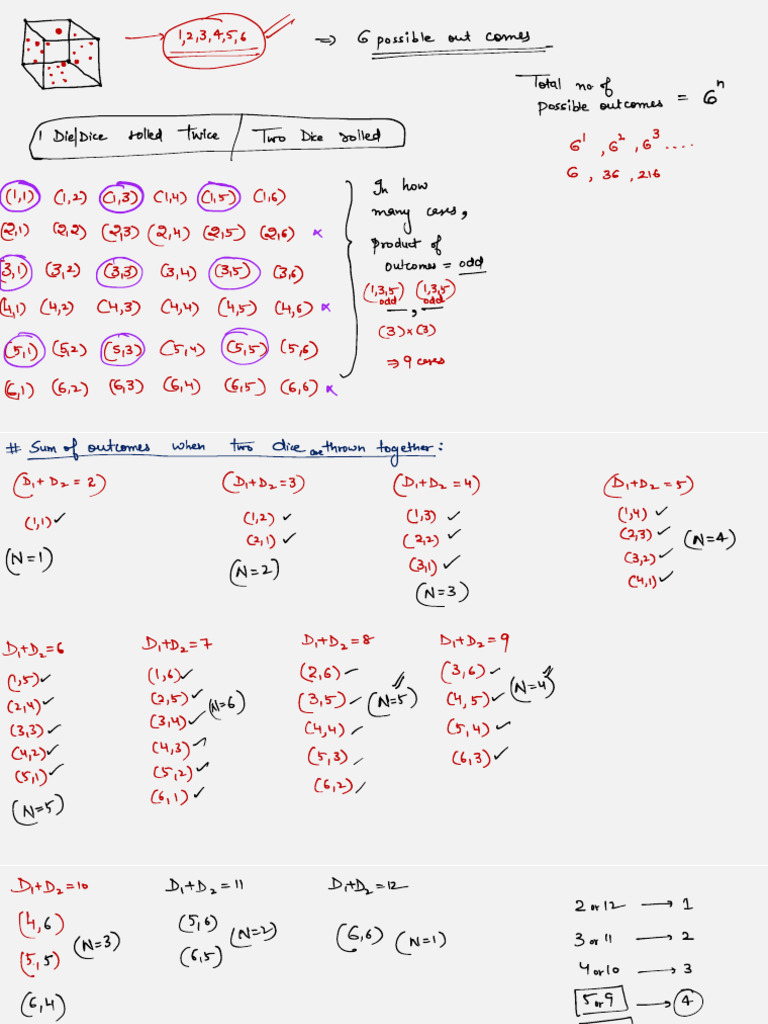 1,2,3,4,5,6 ⇒ 6 possible out comes
Total no of
possible outcomes = 6^n
6^1 , 6^2 , 6^3 ....
6 , 36 , 216
1 Die/Dice rolled twice / Two Dice rolled
(1,1) (1,2) (1,3) (1,4) (1,5) (1,6)
(2,1) (2,2) (2,3) (2,4) (2,5) (2,6) ×
(3,1) (3,2) (3,3) (3,4) (3,5) (3,6)
(4,1) (4,2) (4,3) (4,4) (4,5) (4,6) ×
(5,1) (5,2) (5,3) (5,4) (5,5) (5,6)
(6,1) (6,2) (6,3) (6,4) (6,5) (6,6) ×
In how
many cases,
product of
outcomes = odd
(1,3,5) (1,3,5)
odd , odd
(3) × (3)
⇒ 9 cases
# Sum of outcomes when two dice are thrown together:
(D1+D2 = 2)
(1,1) ✓
(N=1)
(D1+D2 = 3)
(1,2) ✓
(2,1) ✓
(N=2)
(D1+D2 = 4)
(1,3) ✓
(2,2) ✓
(3,1) ✓
(N=3)
(D1+D2 = 5)
(1,4) ✓
(2,3) ✓ (N=4)
(3,2) ✓
(4,1) ✓
D1+D2=6
(1,5) ✓
(2,4) ✓
(3,3) ✓
(4,2) ✓
(5,1) ✓
(N=5)
D1+D2=7
(1,6) ✓
(2,5) ✓ (N=6)
(3,4) ✓
(4,3) ✓
(5,2) ✓
(6,1) ✓
D1+D2=8
(2,6) ✓
(3,5) ✓ (N=5)
(4,4) ✓
(5,3) ✓
(6,2) ✓
D1+D2=9
(3,6) ✓ (N=4)
(4,5) ✓
(5,4) ✓
(6,3) ✓
D1+D2=10
(4,6)
(5,5) (N=3)
(6,4)
D1+D2=11
(5,6) (N=2)
(6,5)
D1+D2=12
(6,6) (N=1)
2 or 12 → 1
3 or 11 → 2
4 or 10 → 3
5 or 9 → 4